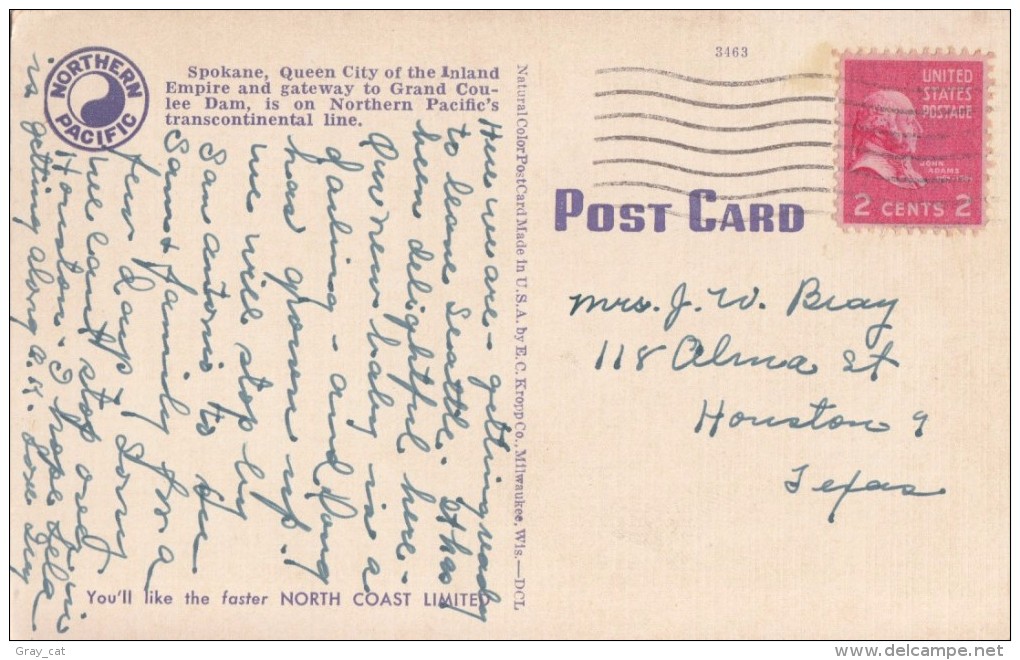 3463
NORTHERN PACIFIC
Spokane, Queen City of the Inland
Empire and gateway to Grand Cou-
lee Dam, is on Northern Pacific's
transcontinental line.
UNITED
STATES
POSTAGE
JOHN
ADAMS
2 CENTS 2
POST CARD
Natural Color Post Card Made in U. S. A. by E. C. Kropp Co., Milwaukee, Wis.—DCL
Here we are - getting ready
to leave Seattle. It has
been delightful here -
Our new baby is a
darling - and Doug
has grown up!
We will stop by
San Antonio to see
Sam & family for a
few days, Sorry
we can't stop over in
Houston. I hope Lela
is getting along O.K. Love
Mrs. J. W. Bray
118 Alma St
Houston 9
Texas
You'll like the faster NORTH COAST LIMITED
Gray_cat